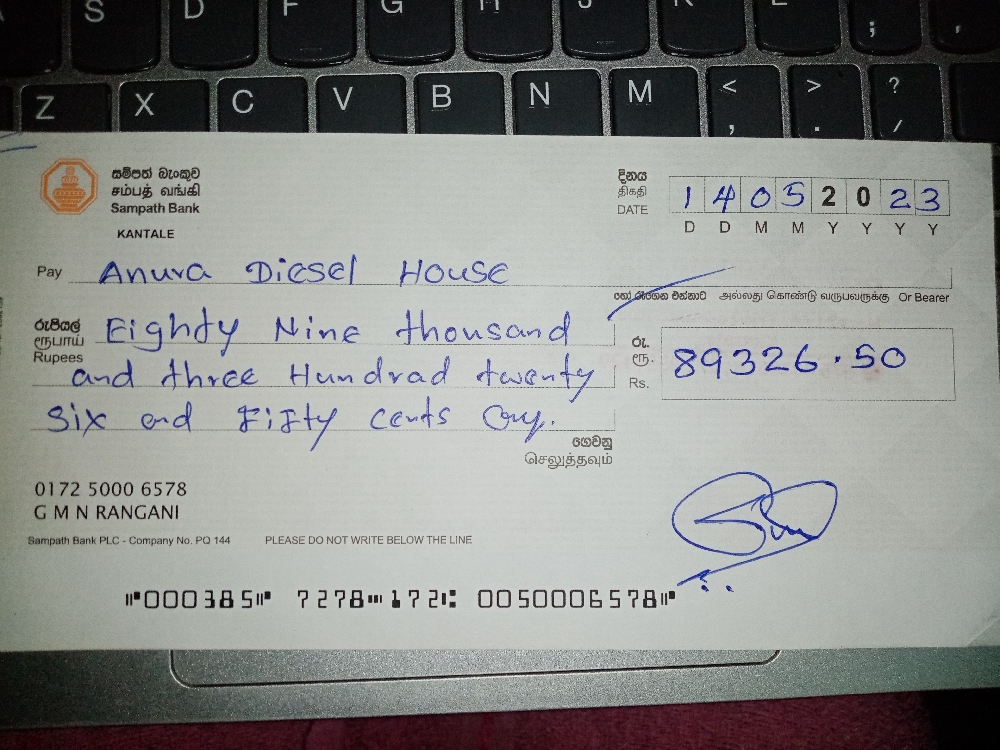 S D F G H J K L ; '
Z X C V B N M < , > . ? /
සම්පත් බැංකුව
சம்பத் வங்கி
Sampath Bank
KANTALE
දිනය
திகதி
DATE
1 4 0 5 2 0 2 3
D D M M Y Y Y Y
Pay Anura Diesel House
හෝ රැගෙන එන්නාට அல்லது கொண்டு வருபவருக்கு Or Bearer
රුපියල්
ரூபாய்
Rupees
Eighty Nine thousand
and three Hundrad twenty
Six and Fifty cents Ony.
රු.
ரூ.
Rs.
89326.50
ගෙවනු
செலுத்தவும்
0172 5000 6578
G M N RANGANI
Sampath Bank PLC - Company No. PQ 144 PLEASE DO NOT WRITE BELOW THE LINE
⑈000385⑈ 7278⑉172⑆ 0050006578⑈